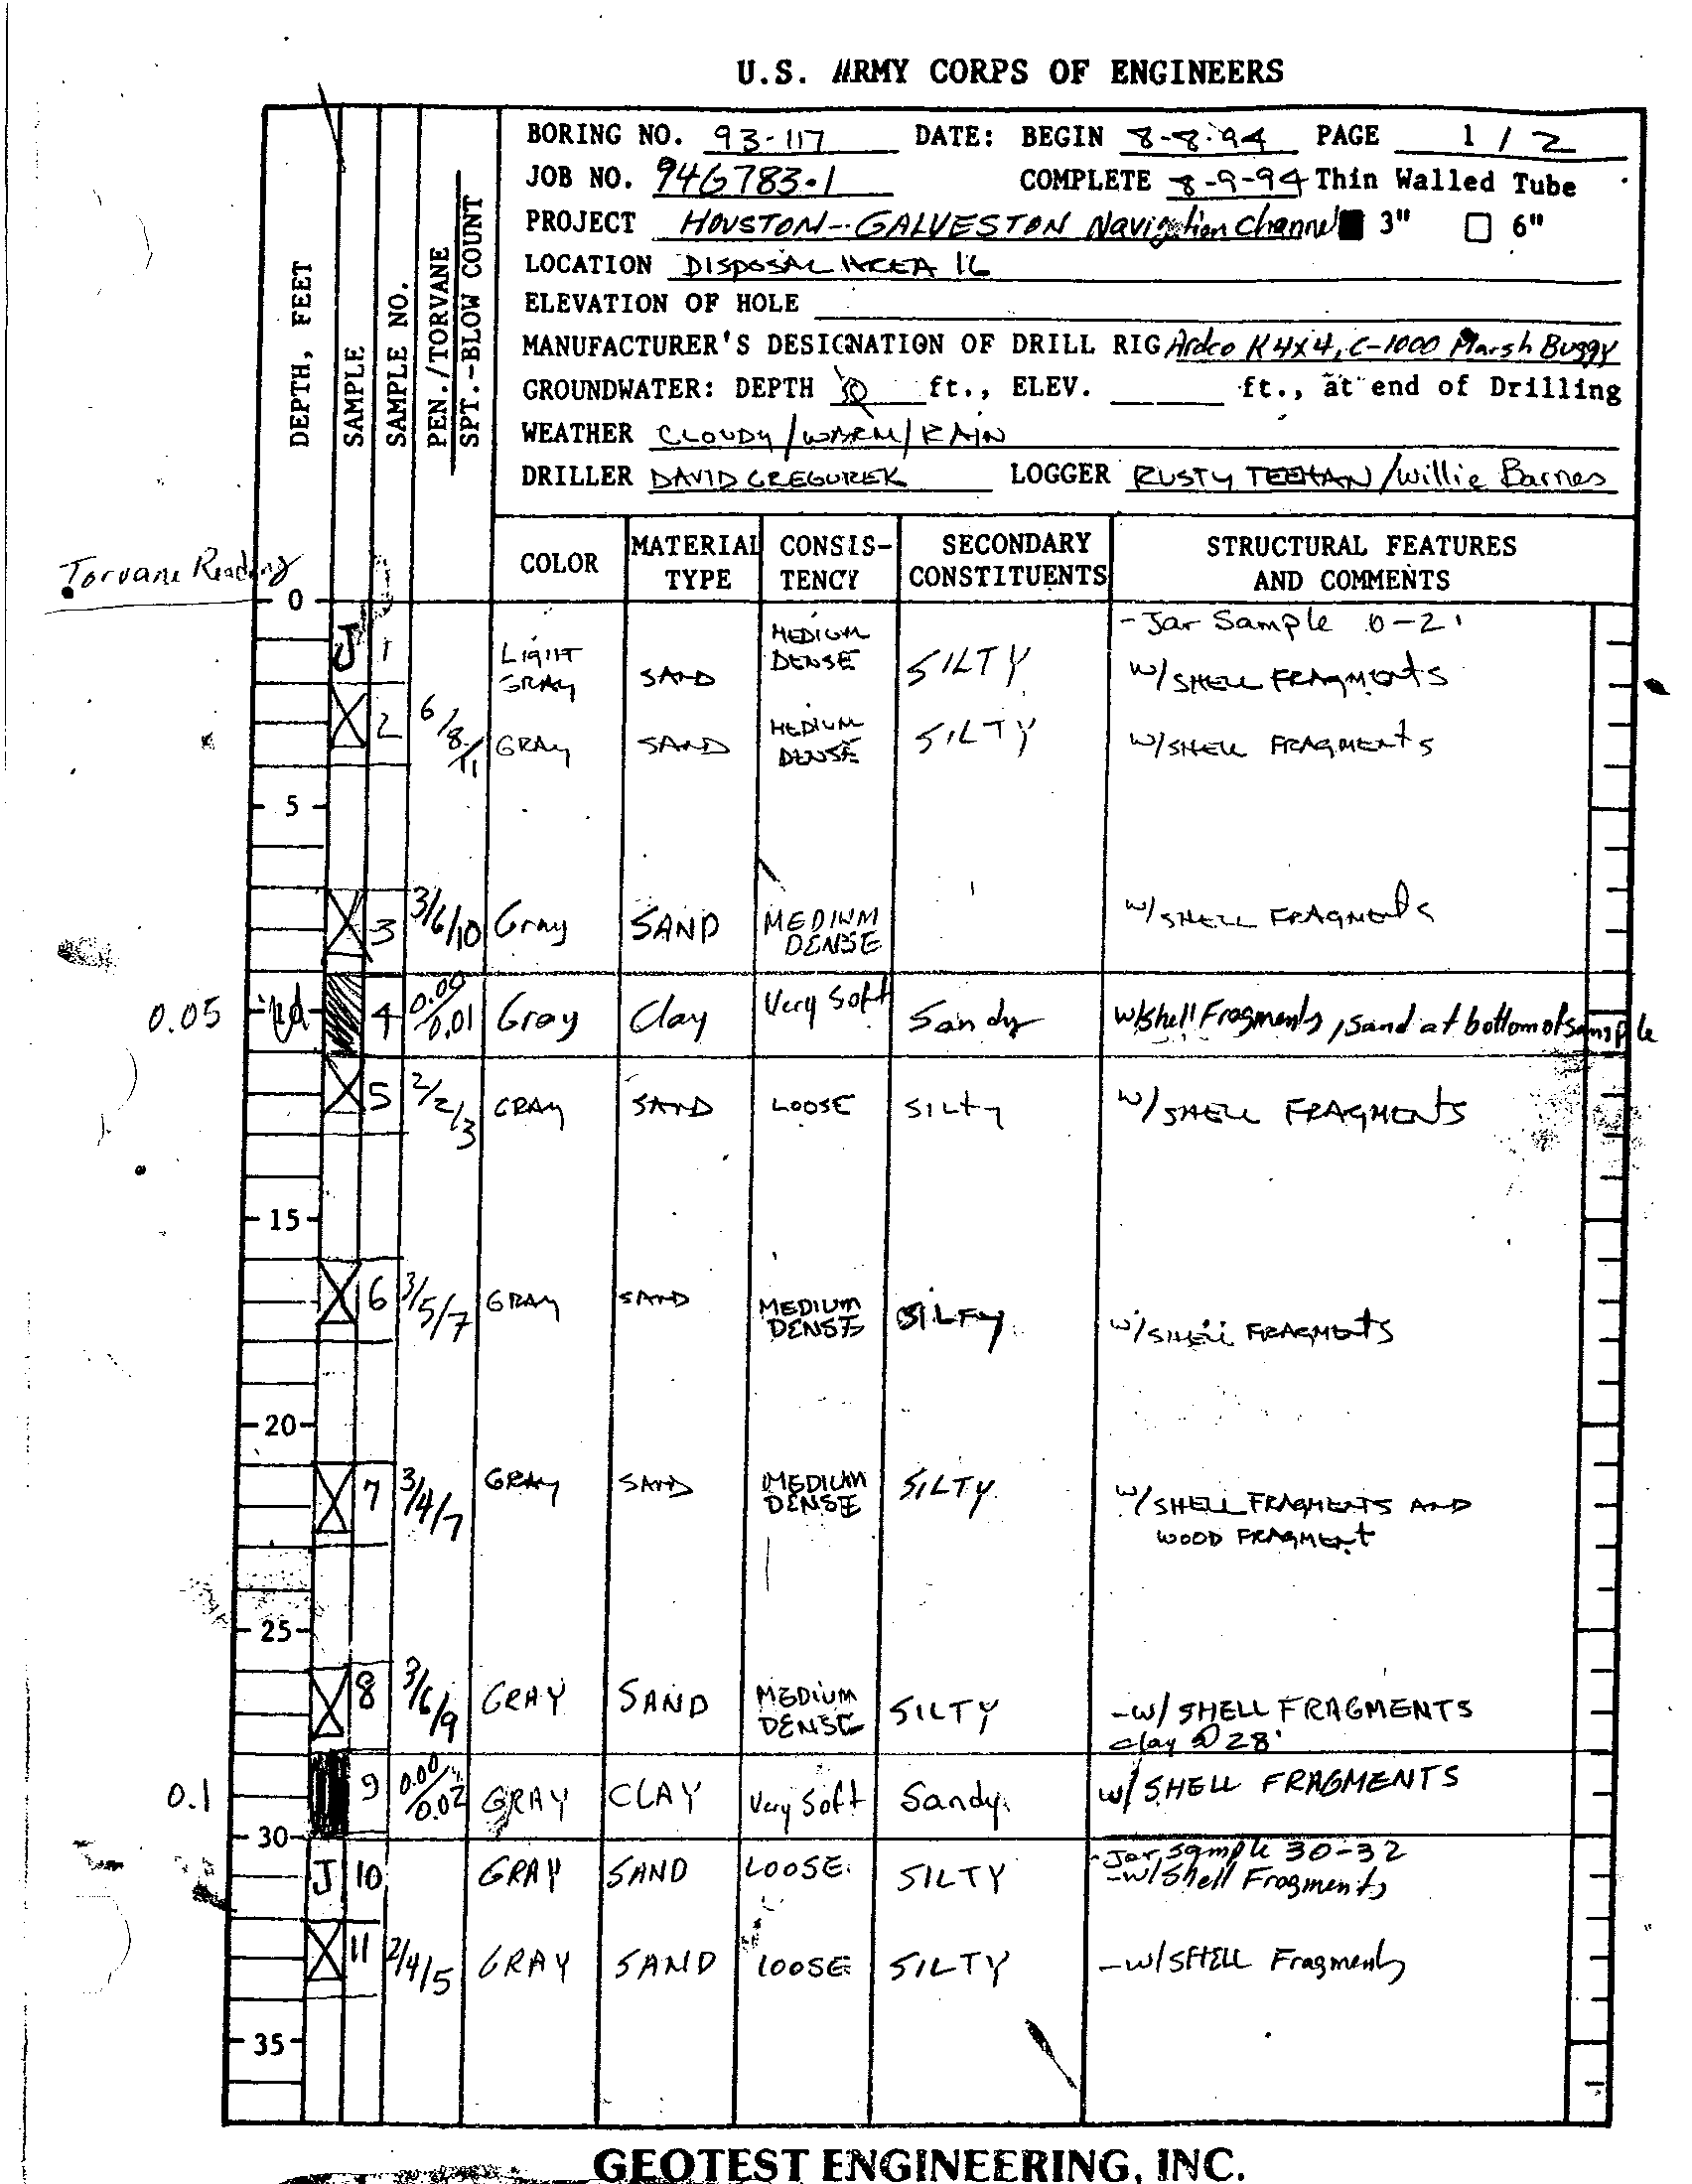 U.S. ARMY CORPS OF ENGINEERS
BORING NO. 93-117 DATE: BEGIN 8-8-94 PAGE 1 / 2
JOB NO. 94G783.1 COMPLETE 8-9-94 Thin Walled Tube
PROJECT HOUSTON-GALVESTON Navigation Channel 3" 6"
LOCATION DISPOSAL AREA 16
ELEVATION OF HOLE
MANUFACTURER'S DESIGNATION OF DRILL RIG Ardco K 4x4, C-1000 Marsh Buggy
GROUNDWATER: DEPTH ft., ELEV. ft., at end of Drilling
WEATHER CLOUDY/WARM/RAIN
DRILLER DAVID GREGUREK LOGGER RUSTY TEEHAN/Willie Barnes
DEPTH, FEET
SAMPLE
SAMPLE NO.
PEN./TORVANE
SPT.-BLOW COUNT
COLOR MATERIAL TYPE CONSIS-TENCY SECONDARY CONSTITUENTS STRUCTURAL FEATURES AND COMMENTS
Torvane Reading
0
- Jar Sample 0-2'
J 1 LIGHT GRAY SAND MEDIUM DENSE SILTY W/SHELL FRAGMENTS
2 6/8/11 GRAY SAND MEDIUM DENSE SILTY W/SHELL FRAGMENTS
5
3 3/6/10 Gray SAND MEDIUM DENSE W/SHELL FRAGMENTS
0.05 4 0.00/0.01 Gray Clay Very Soft Sandy w/Shell Fragments, Sand at bottom of sample
5 2/2/3 GRAY SAND LOOSE SILTY W/SHELL FRAGMENTS
15
6 3/5/7 GRAY SAND MEDIUM DENSE SILTY W/SHELL FRAGMENTS
20
7 3/4/7 GRAY SAND MEDIUM DENSE SILTY W/SHELL FRAGMENTS AND
WOOD FRAGMENT
25
8 3/6/9 GRAY SAND MEDIUM DENSE SILTY -W/ SHELL FRAGMENTS
clay @ 28'
0.1 9 0.00/0.02 GRAY CLAY Very Soft Sandy W/ SHELL FRAGMENTS
30
- Jar Sample 30-32
J 10 GRAY SAND LOOSE SILTY -w/Shell Fragments
11 2/4/5 GRAY SAND LOOSE SILTY -W/SHELL Fragments
35
GEOTEST ENGINEERING, INC.